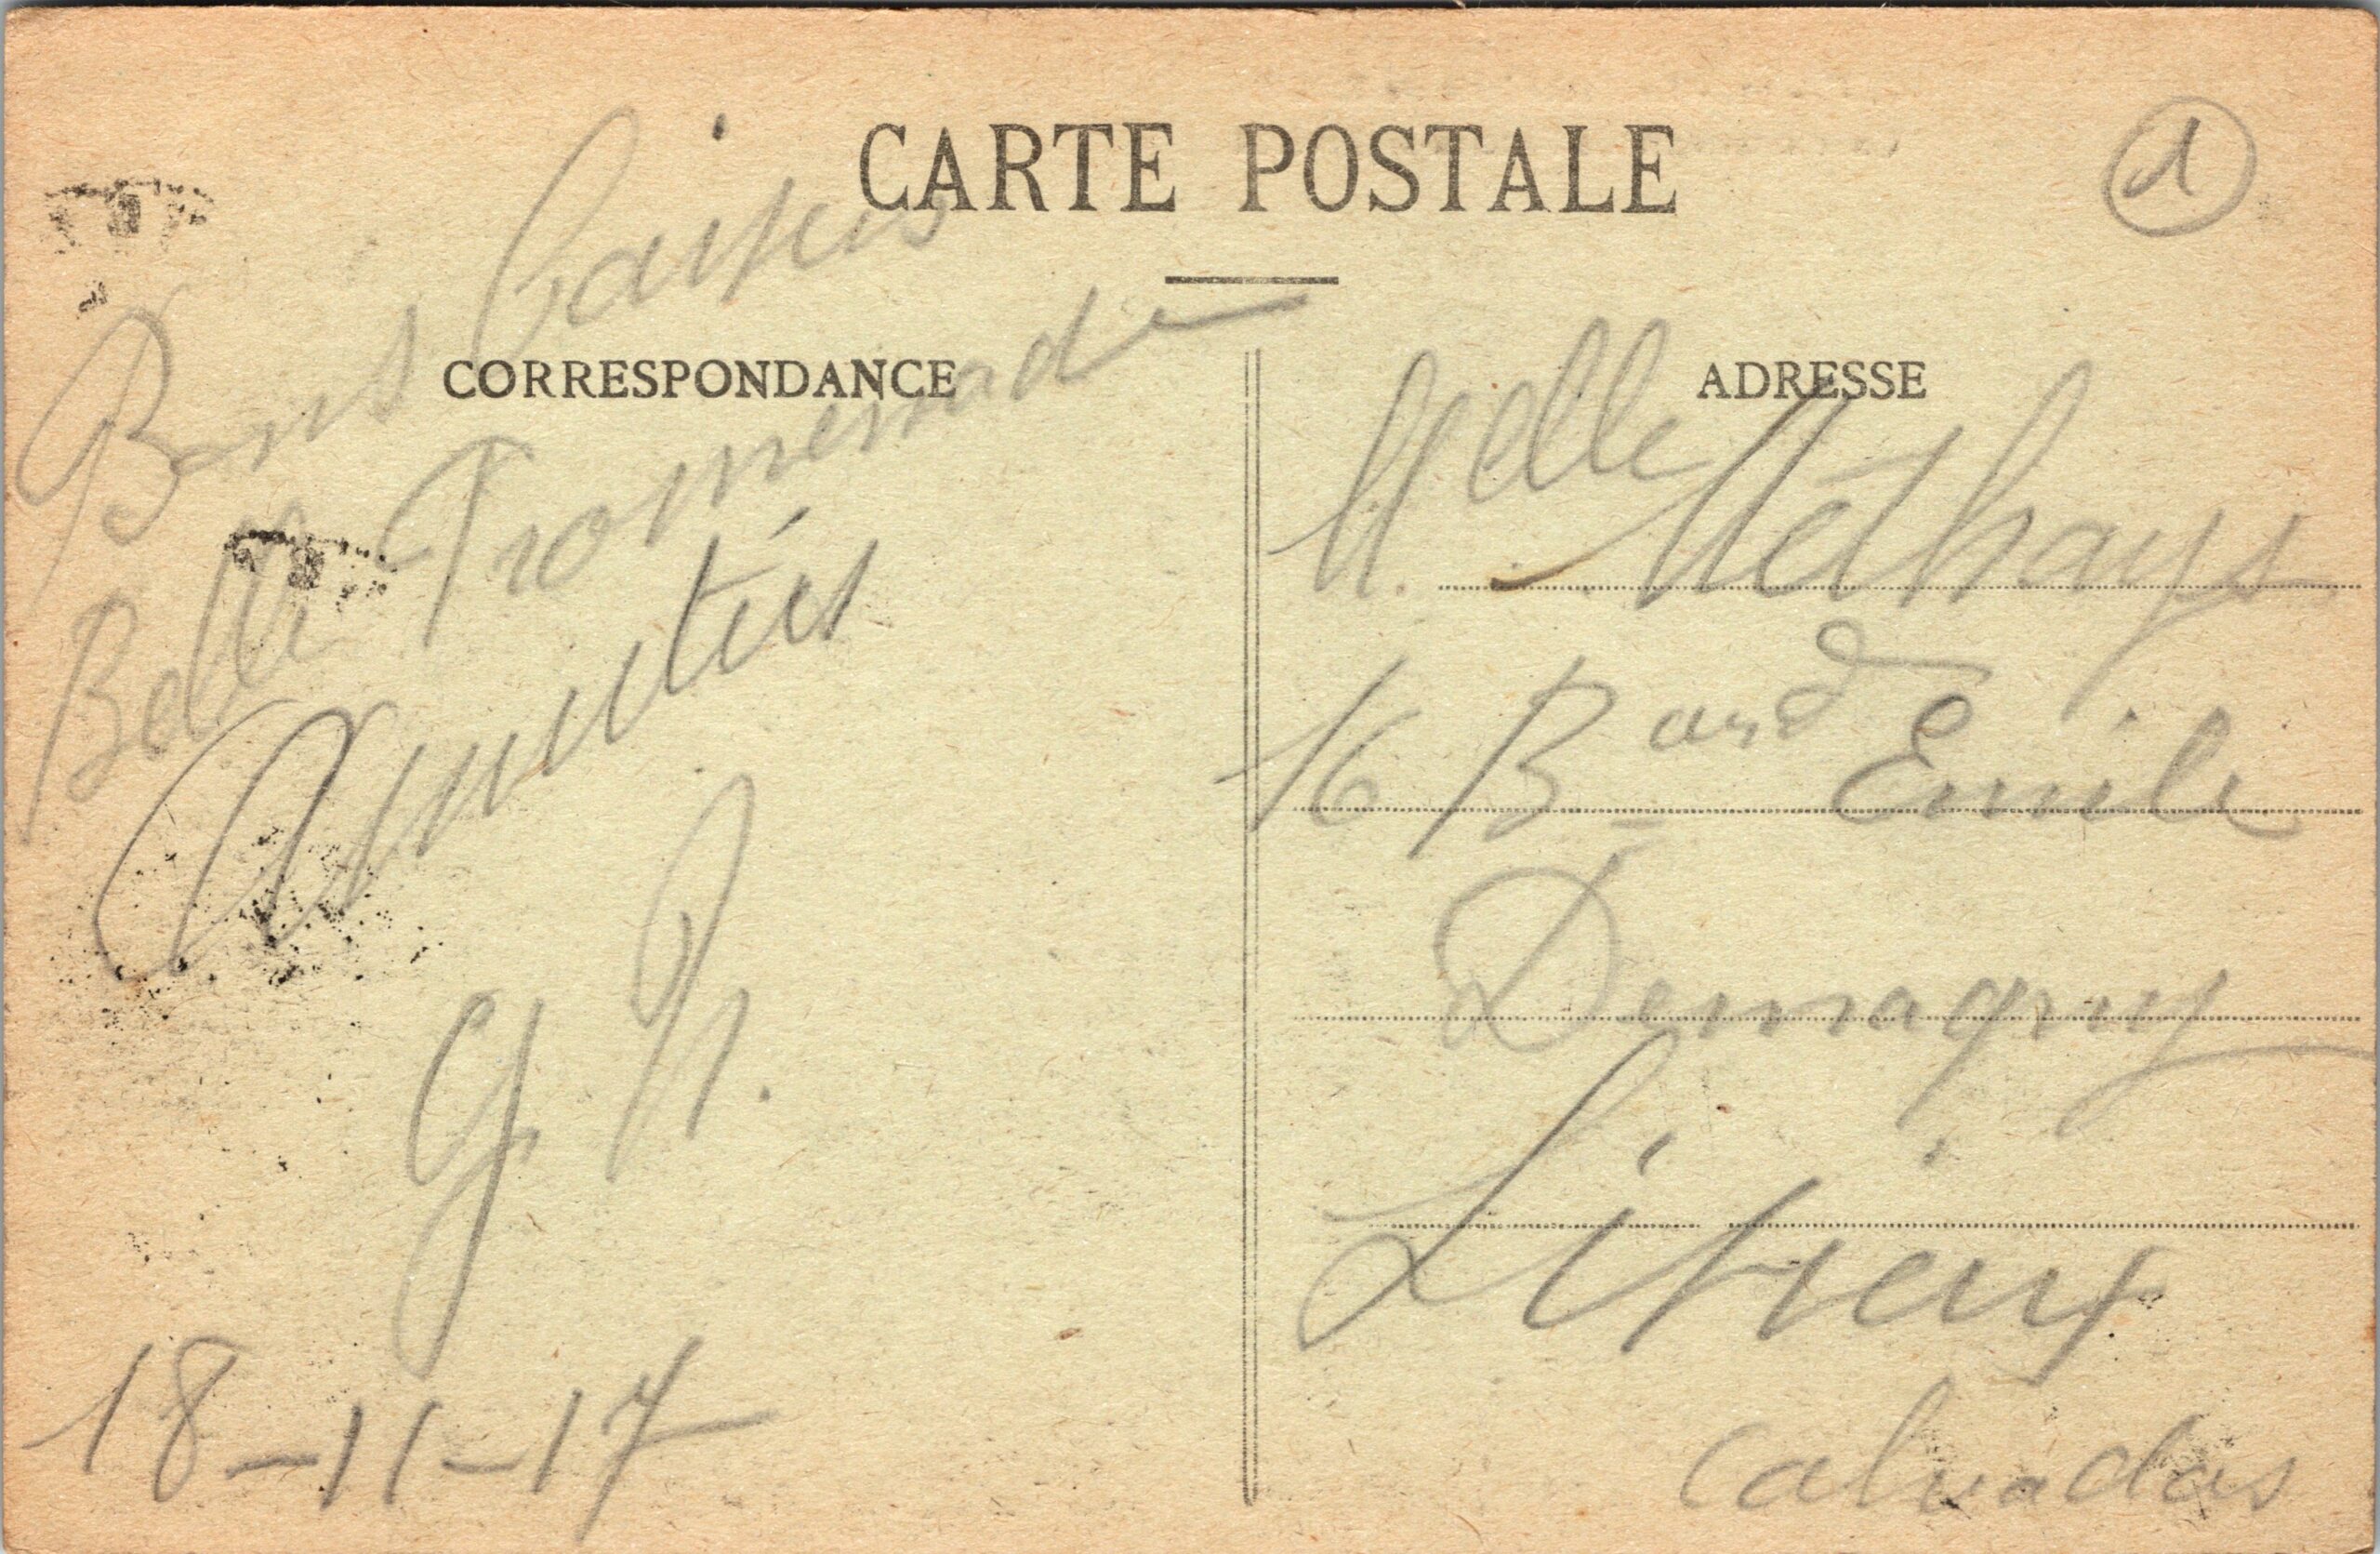 CARTE POSTALE
1
CORRESPONDANCE
Bons
Belle Promenade
Amitiés
18-11-17
ADRESSE
Melle Méthays
16 Bard Emile
Demagny
Lisieux
Calvados